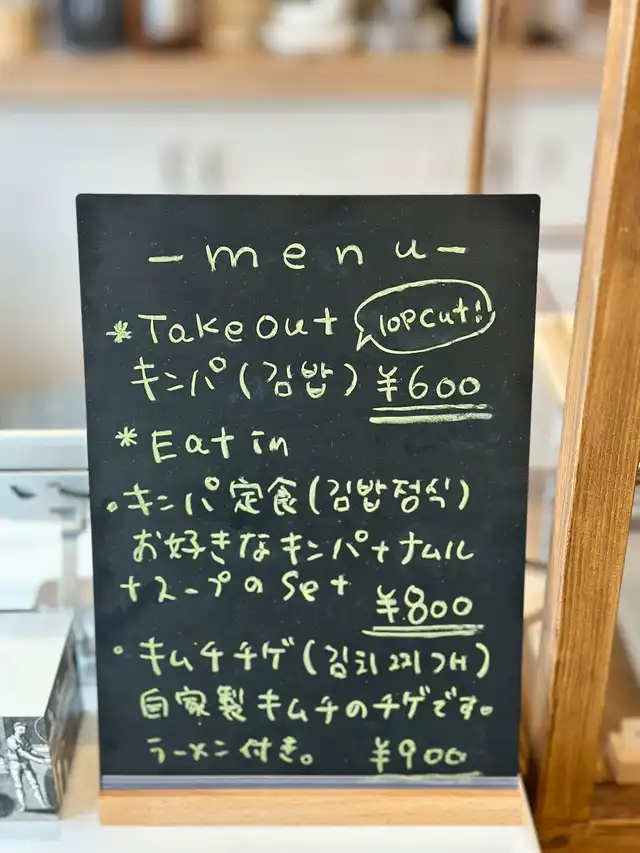 -menu-
*Take Out 10P cut!
キンパ(김밥) ¥600
*Eat in
・キンパ定食(김밥정식)
お好きなキンパ+ナムル
+スープのSet ¥800
・キムチチゲ(김치찌개)
自家製キムチのチゲです。
ラーメン付き。 ¥900